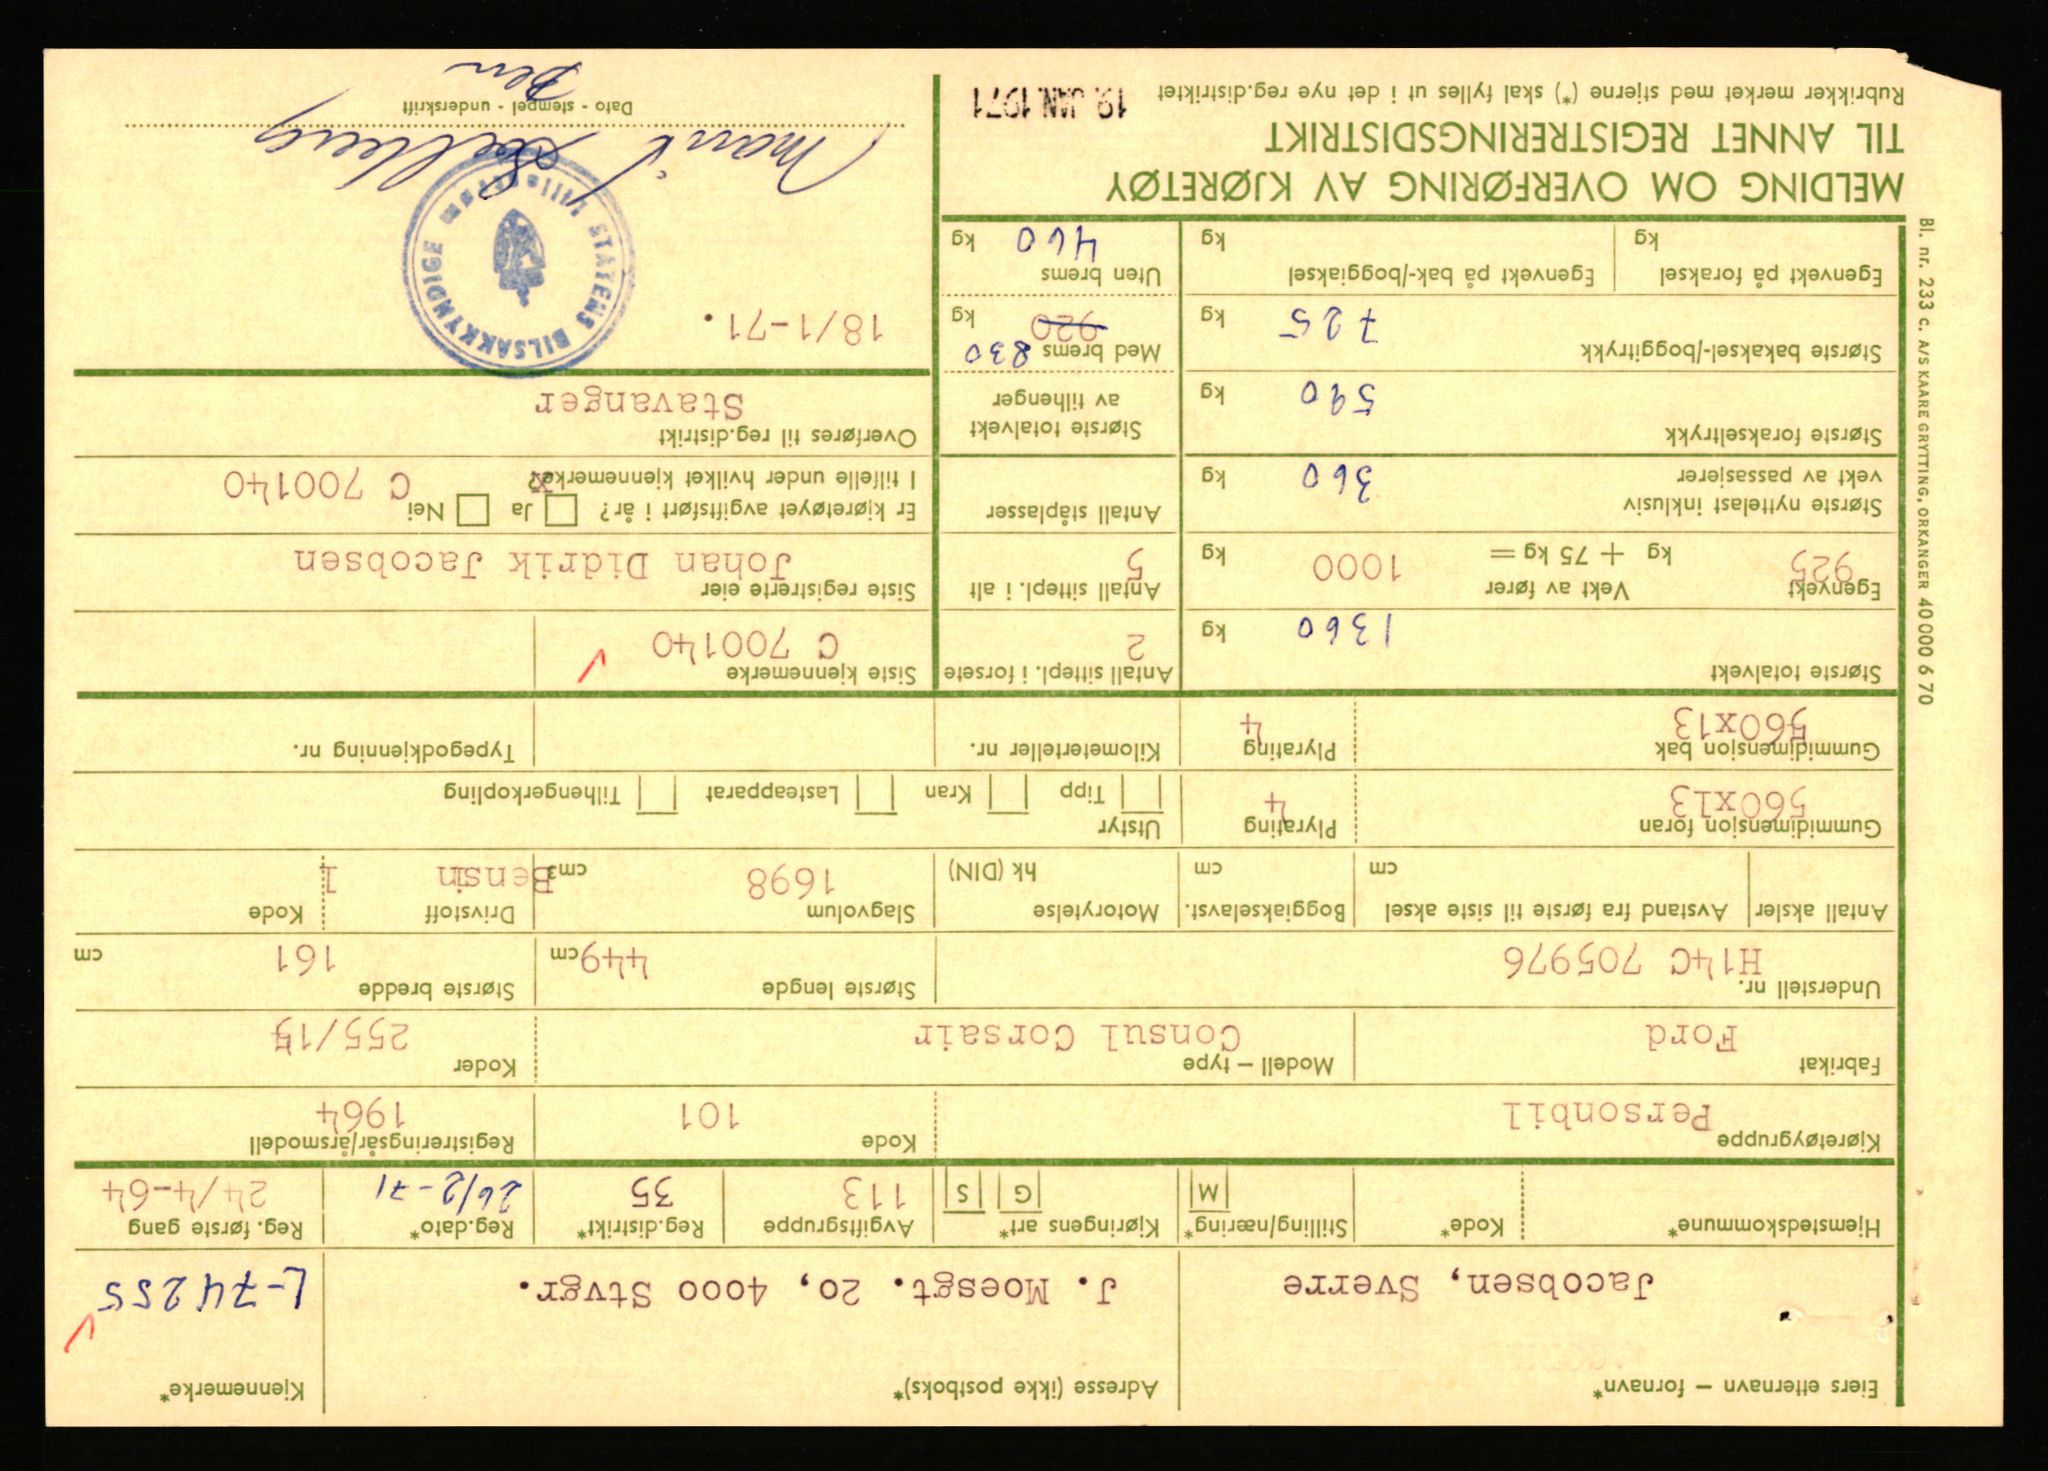 Eiers etternavn – fornavn*
Adresse (ikke postboks)*
Kjennemerke*
Jacobsen, Sverre
J. Moesgt. 20, 4000 Stvgr.
L-74255
Hjemstedskommune*
Kode*
Stilling/næring*
M
Kjøringens art*
G
S
Avgiftsgruppe
113
Reg.distrikt*
35
Reg.dato*
26/2-71
Reg. første gang
24/4-64
Kjøretøygruppe
Personbil
Kode
101
Registreringsår/årsmodell
1964
Fabrikat
Ford
Modell – type
Consul Corsair
Koder
255/15
Understell nr.
H14C 705976
Største lengde
449 cm
Største bredde
161 cm
Antall aksler
Avstand fra første til siste aksel
cm
Boggiakselavst.
cm
Motorytelse
hk (DIN)
Slagvolum
1698 cm³
Drivstoff
Bensin
Kode
1
Gummidimensjon foran
560x13
Plyrating
4
Utstyr
Tipp
Kran
Lasteapparat
Tilhengerkopling
Gummidimensjon bak
560x13
Plyrating
4
Kilometerteller nr.
Typegodkjenning nr.
Største totalvekt
1360 kg
Egenvekt
925 kg
Vekt av fører
+ 75 kg =
1000 kg
Største nyttelast inklusiv
vekt av passasjerer
360 kg
Største forakseltrykk
590 kg
Største bakaksel-/boggitrykk
725 kg
Egenvekt på foraksel
kg
Egenvekt på bak-/boggiaksel
kg
Antall sittepl. i forsete
2
Antall sittepl. i alt
5
Antall ståplasser
Største totalvekt
av tilhenger
Med brems 830
920 kg
Uten brems
460 kg
Siste kjennemerke
C 700140
Siste registrerte eier
Johan Didrik Jacobsen
Er kjøretøyet avgiftsført i år? Ja Nei
x
I tilfelle under hvilket kjennemerke?
C 700140
Overføres til reg.distrikt
Stavanger
18/1-71.
STATENS BILSAKKYNDIGE
Lillestrøm
Marit
Dato - stempel - underskrift
MELDING OM OVERFØRING AV KJØRETØY
TIL ANNET REGISTRERINGSDISTRIKT
Rubrikker merket med stjerne (*) skal fylles ut i det nye reg.distriktet
19. JAN. 1971
Bl. nr. 233 c. A/S KAARE GRYTTING, ORKANGER 40 000 6 70